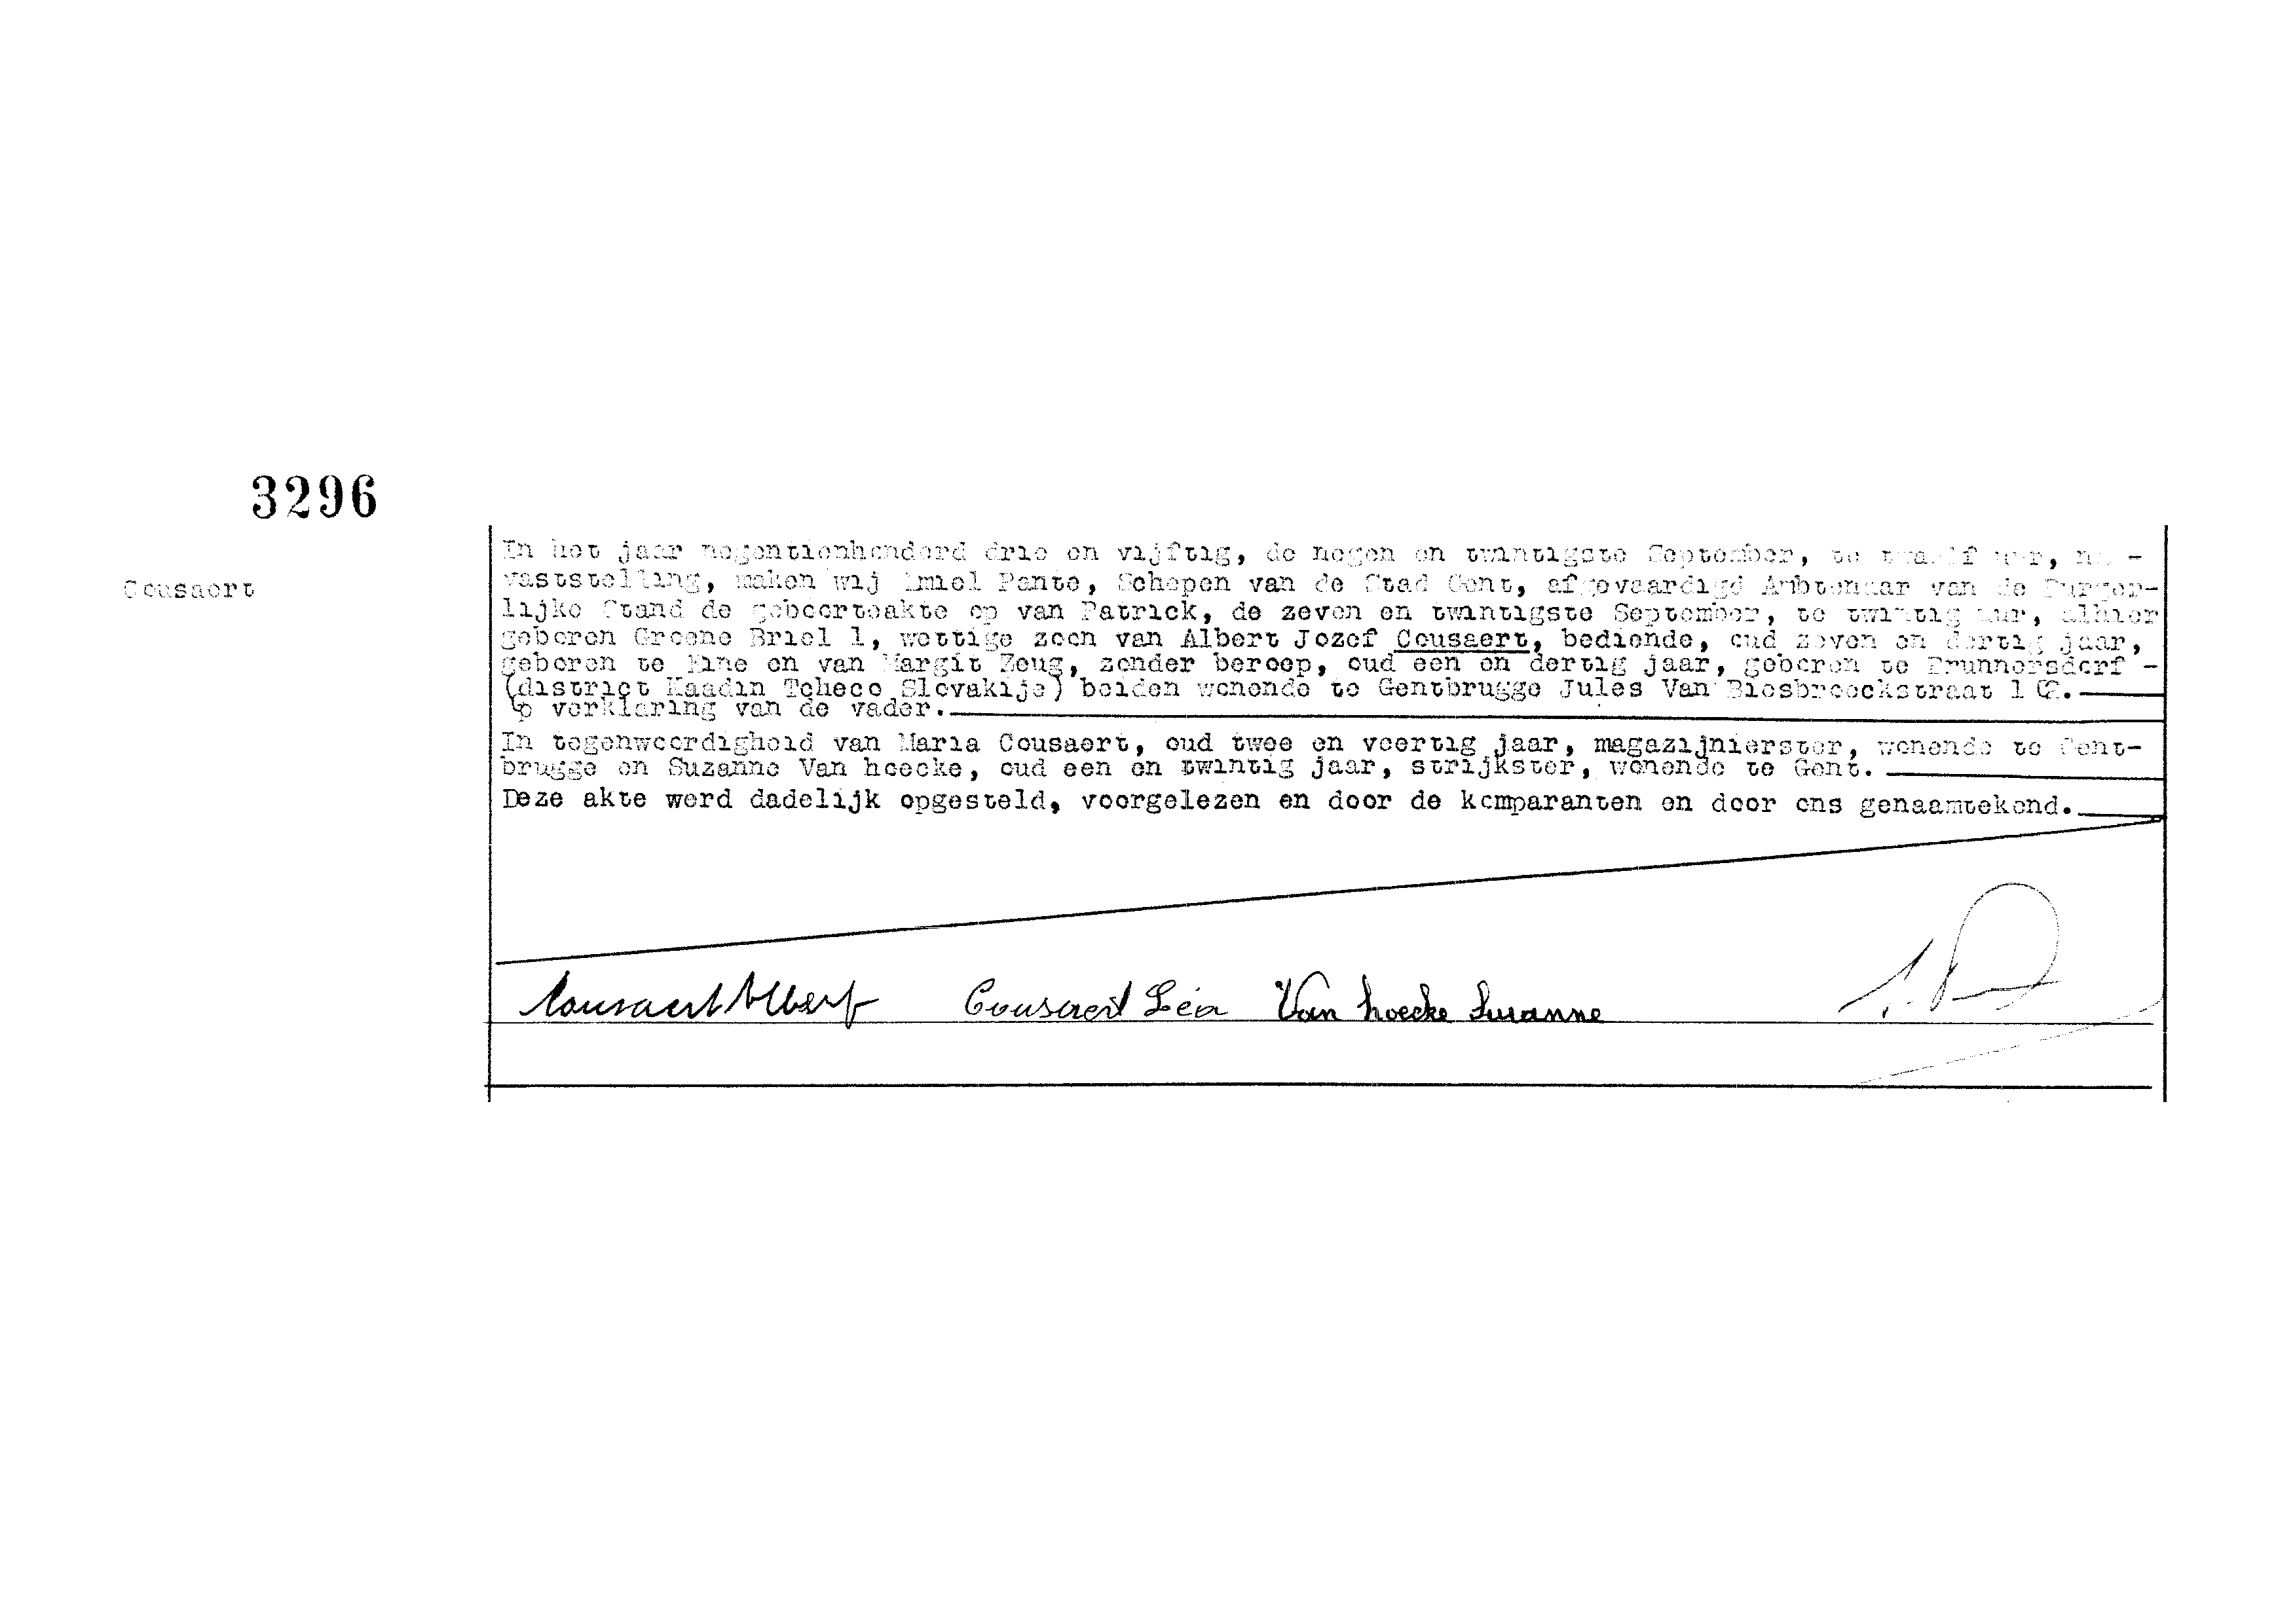 3296
Cousaert
In het jaar negentienhonderd drie en vijftig, de negen en twintigste September, te twaalf uur, na -
vaststelling, maken wij Emiel Pante, Schepen van de Stad Gent, afgevaardigd Ambtenaar van de Burger-
lijke Stand de geboorteakte op van Patrick, de zeven en twintigste September, te twintig uur, alhier
geboren Groene Briel 1, wettige zoon van Albert Jozef Cousaert, bediende, oud zeven en dertig jaar,
geboren te Eine en van Margit Zeug, zonder beroep, oud een en dertig jaar, geboren te Brunnersdorf -
(district Kaadin Tcheco Slovakije) beiden wonende te Gentbrugge Jules Van Biesbroeckstraat 102.
Op verklaring van de vader.
In tegenwoordigheid van Maria Cousaert, oud twee en veertig jaar, magazijnierster, wonende te Gent-
brugge en Suzanne Van hoecke, oud een en twintig jaar, strijkster, wonende te Gent.
Deze akte werd dadelijk opgesteld, voorgelezen en door de komparanten en door ons genaamtekend.
Cousaert Albert Cousaert Léa Van hoecke Suzanne